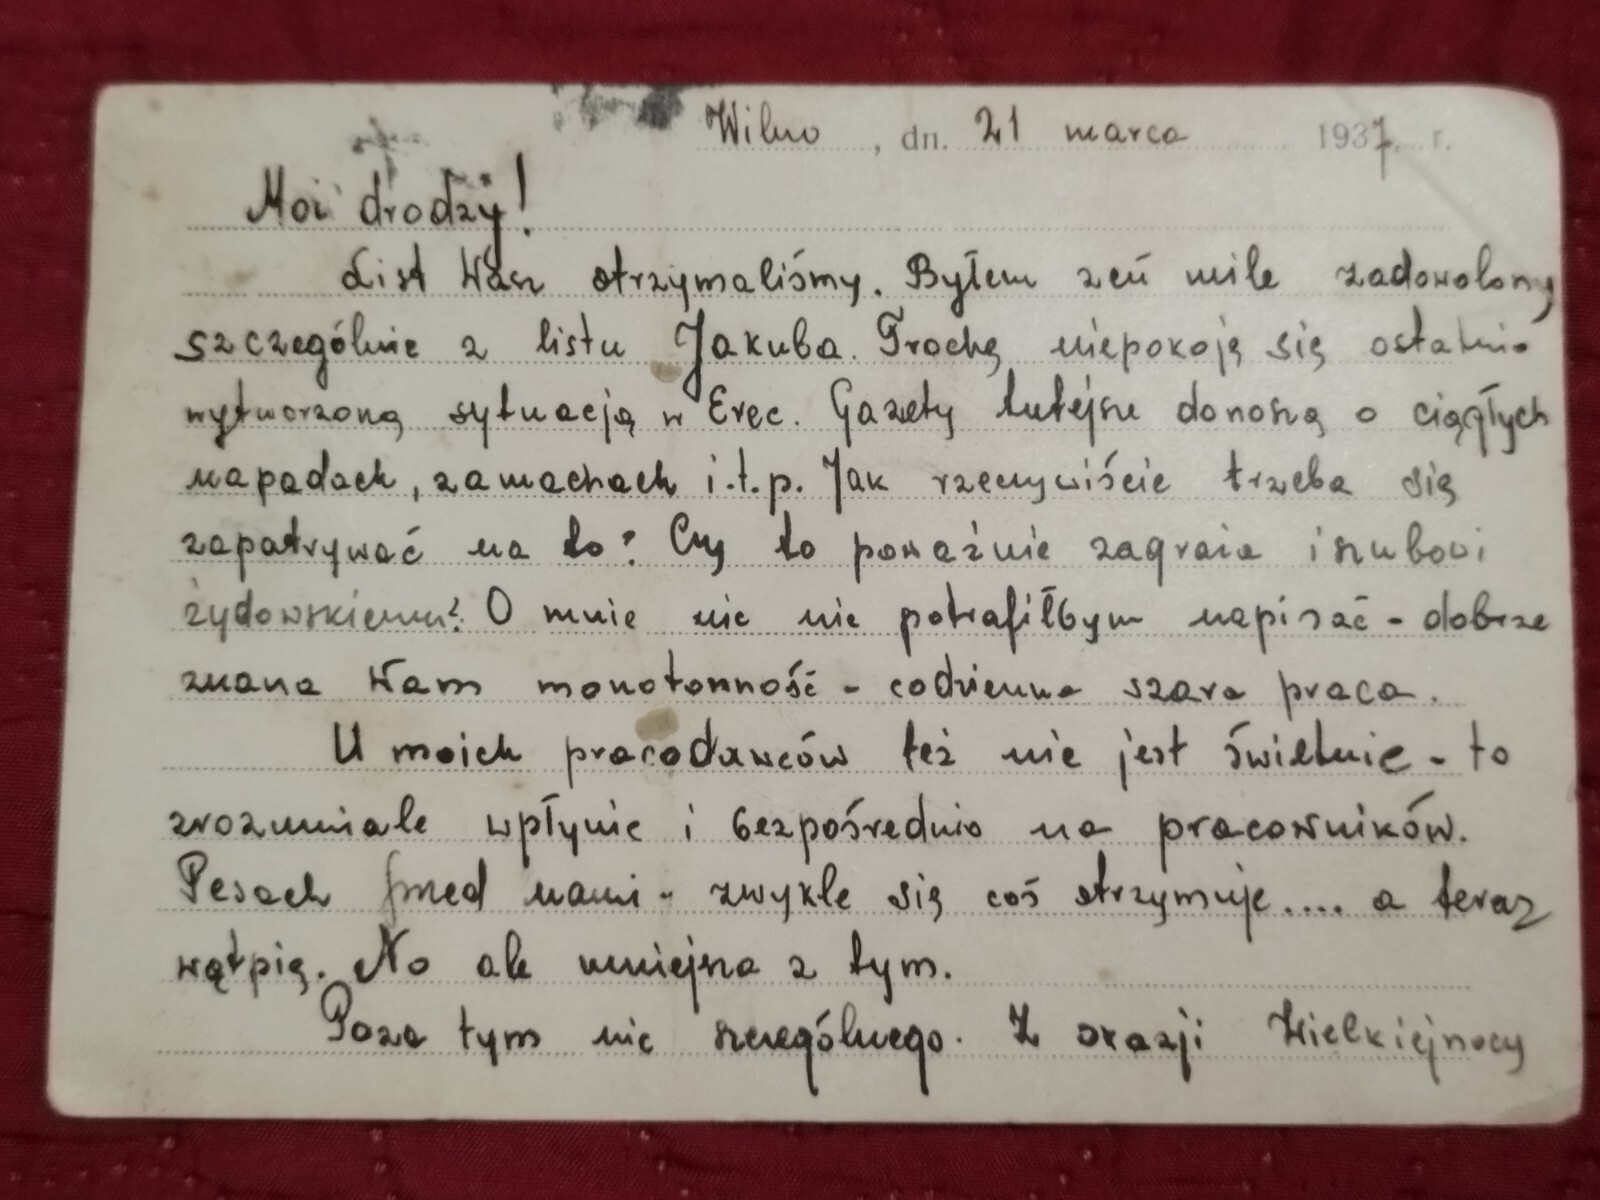 Wilno, dn. 21 marca 1937 r.
Moi drodzy!
List Wasz otrzymaliśmy. Byłem zeń mile zadowolony
szczególnie z listu Jakuba. Trochę niepokoję się ostatnio
wytworzoną sytuacją w Erec. Gazety tutejsze donoszą o ciągłych
napadach, zamachach i.t.p. Jak rzeczywiście trzeba się
zapatrywać na to? Czy to poważnie zagraża iszubowi
żydowskiemu? O mnie nic nie potrafiłbym napisać - dobrze
znana Wam monotonność - codzienna szara praca.
U moich pracodawców też nie jest świetnie - to
zrozumiałe wpłynie i bezpośrednio na pracowników.
Pesach przed nami - zwykle się coś otrzymuje.... a teraz
wątpię. No ale mniejsza z tym.
Poza tym nic szczególnego. Z okazji Wielkiejnocy